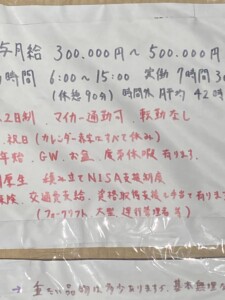 与月給 300.000円〜500.000円
時間 6:00〜15:00 実働 7時間 30
(休憩 90分) 時間外 月平均 42時
2日制. マイカー通勤可 転勤なし
祝日 (カレンダー赤字はすべて休み)
年始. GW. お盆. 夏季休暇 有ります.
厚生 積み立てNISA支援制度
保険. 交通費支給. 資格取得支援と手当て有ります
(フォークリフト 大型 運行管理者 等)
→ 重たい品物は多少ありますが、基本無理な